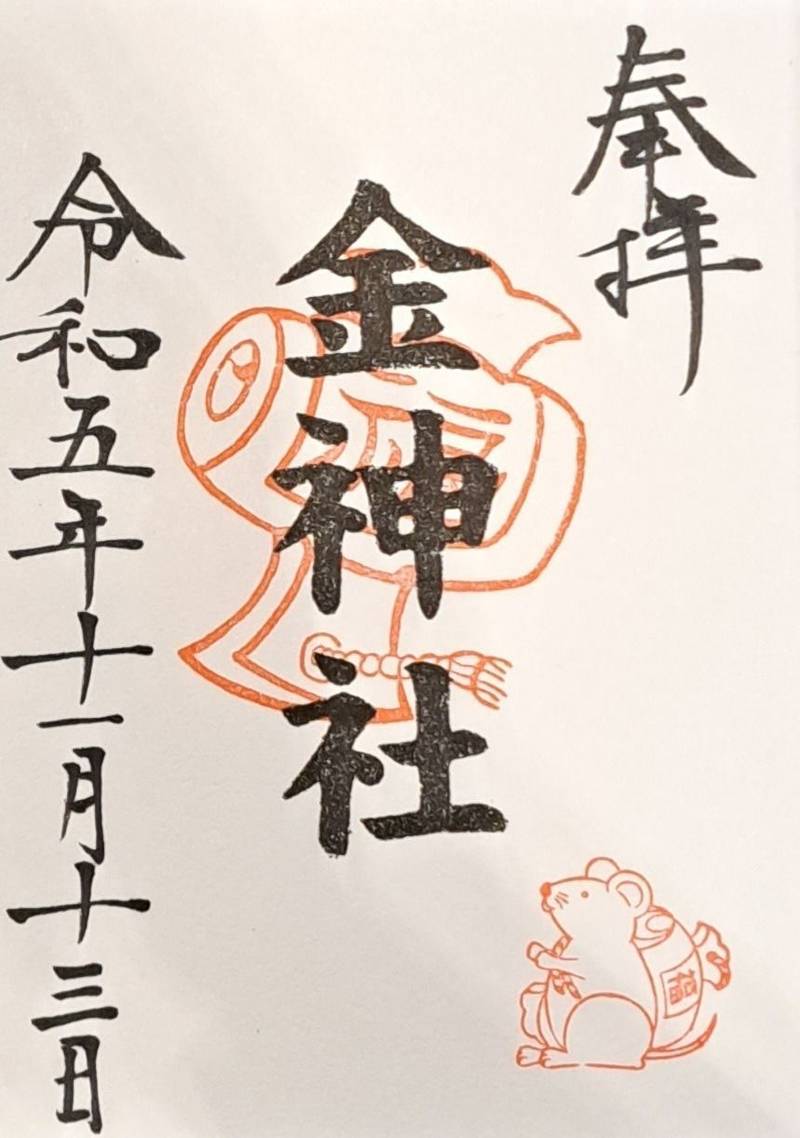 奉拝
金神社
令和五年十一月十三日
福